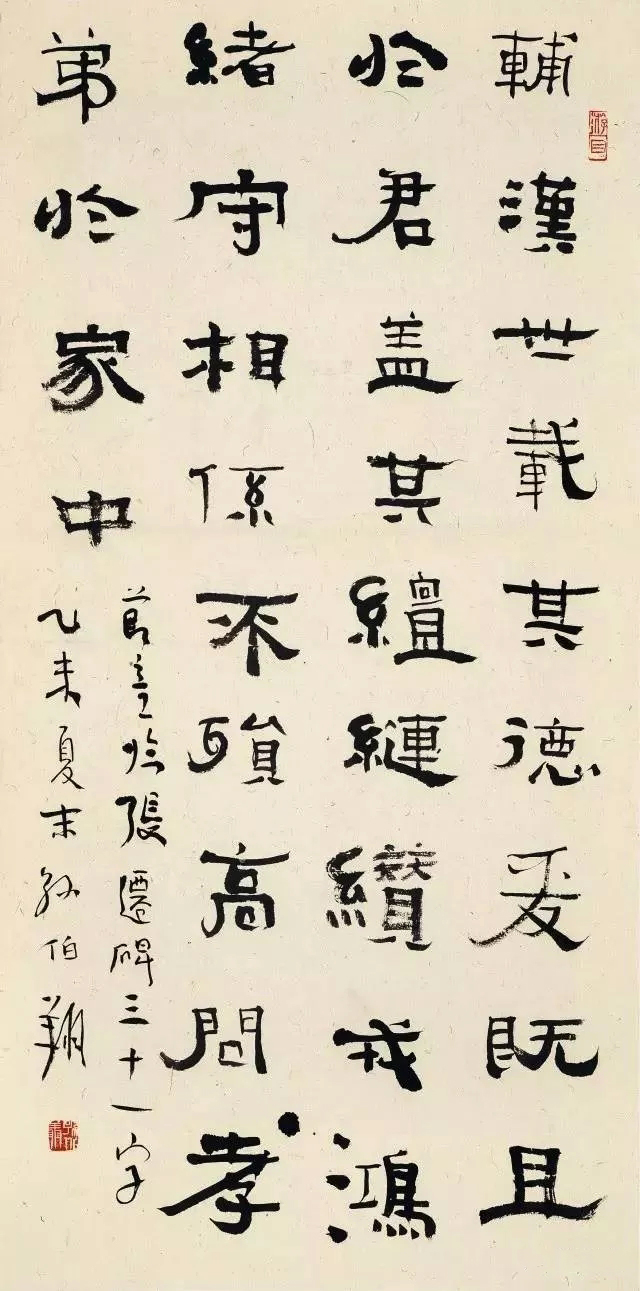 輔漢世載其德爰既且
於君盖其繵縺纘戎鴻
緒守相係不殞高問孝
弟於家中
節意临張遷碑三十一字
乙未夏末孙伯翔